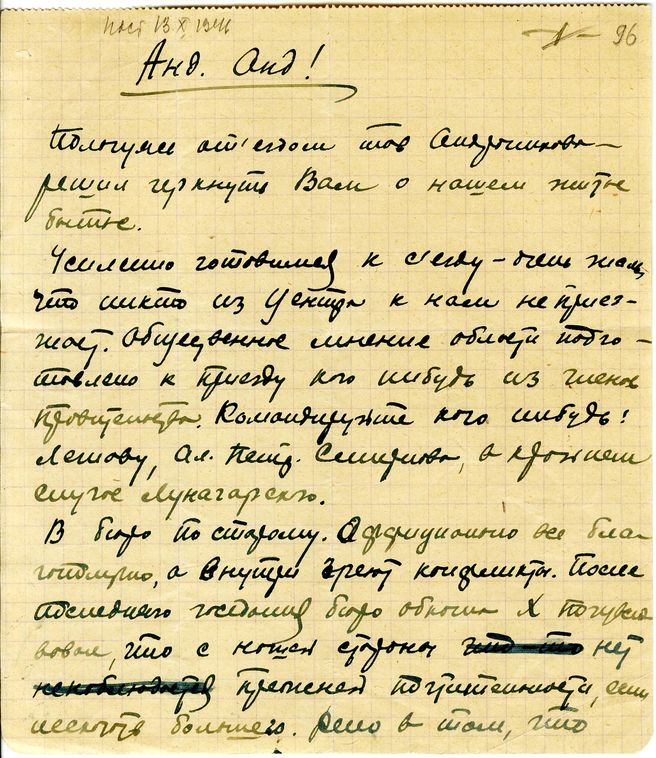 96
Анд. Анд!
Пользуясь от'ездом тов Андроникова –
решил черкнуть Вам о нашем житье
бытье.
Усиленно готовимся к с'езду – очень жаль,
что никто из Центра к нам не приез-
жает. Общественное мнение области подго-
товлено к приезду кого нибудь из членов
правительства. Командируйте кого нибудь!
Ал. Петр. Смирнова, в крайнем
случае Луначарского.
В бюро по старому. Оффициально все бла-
гополучно, а внутри зреют конфликты. После
последнего заседания бюро обкома Х почувст
вовал, что с нашей стороны что-то нет
не наблюдается прежней почтительности, если
не сказать большего. Дело в том, что